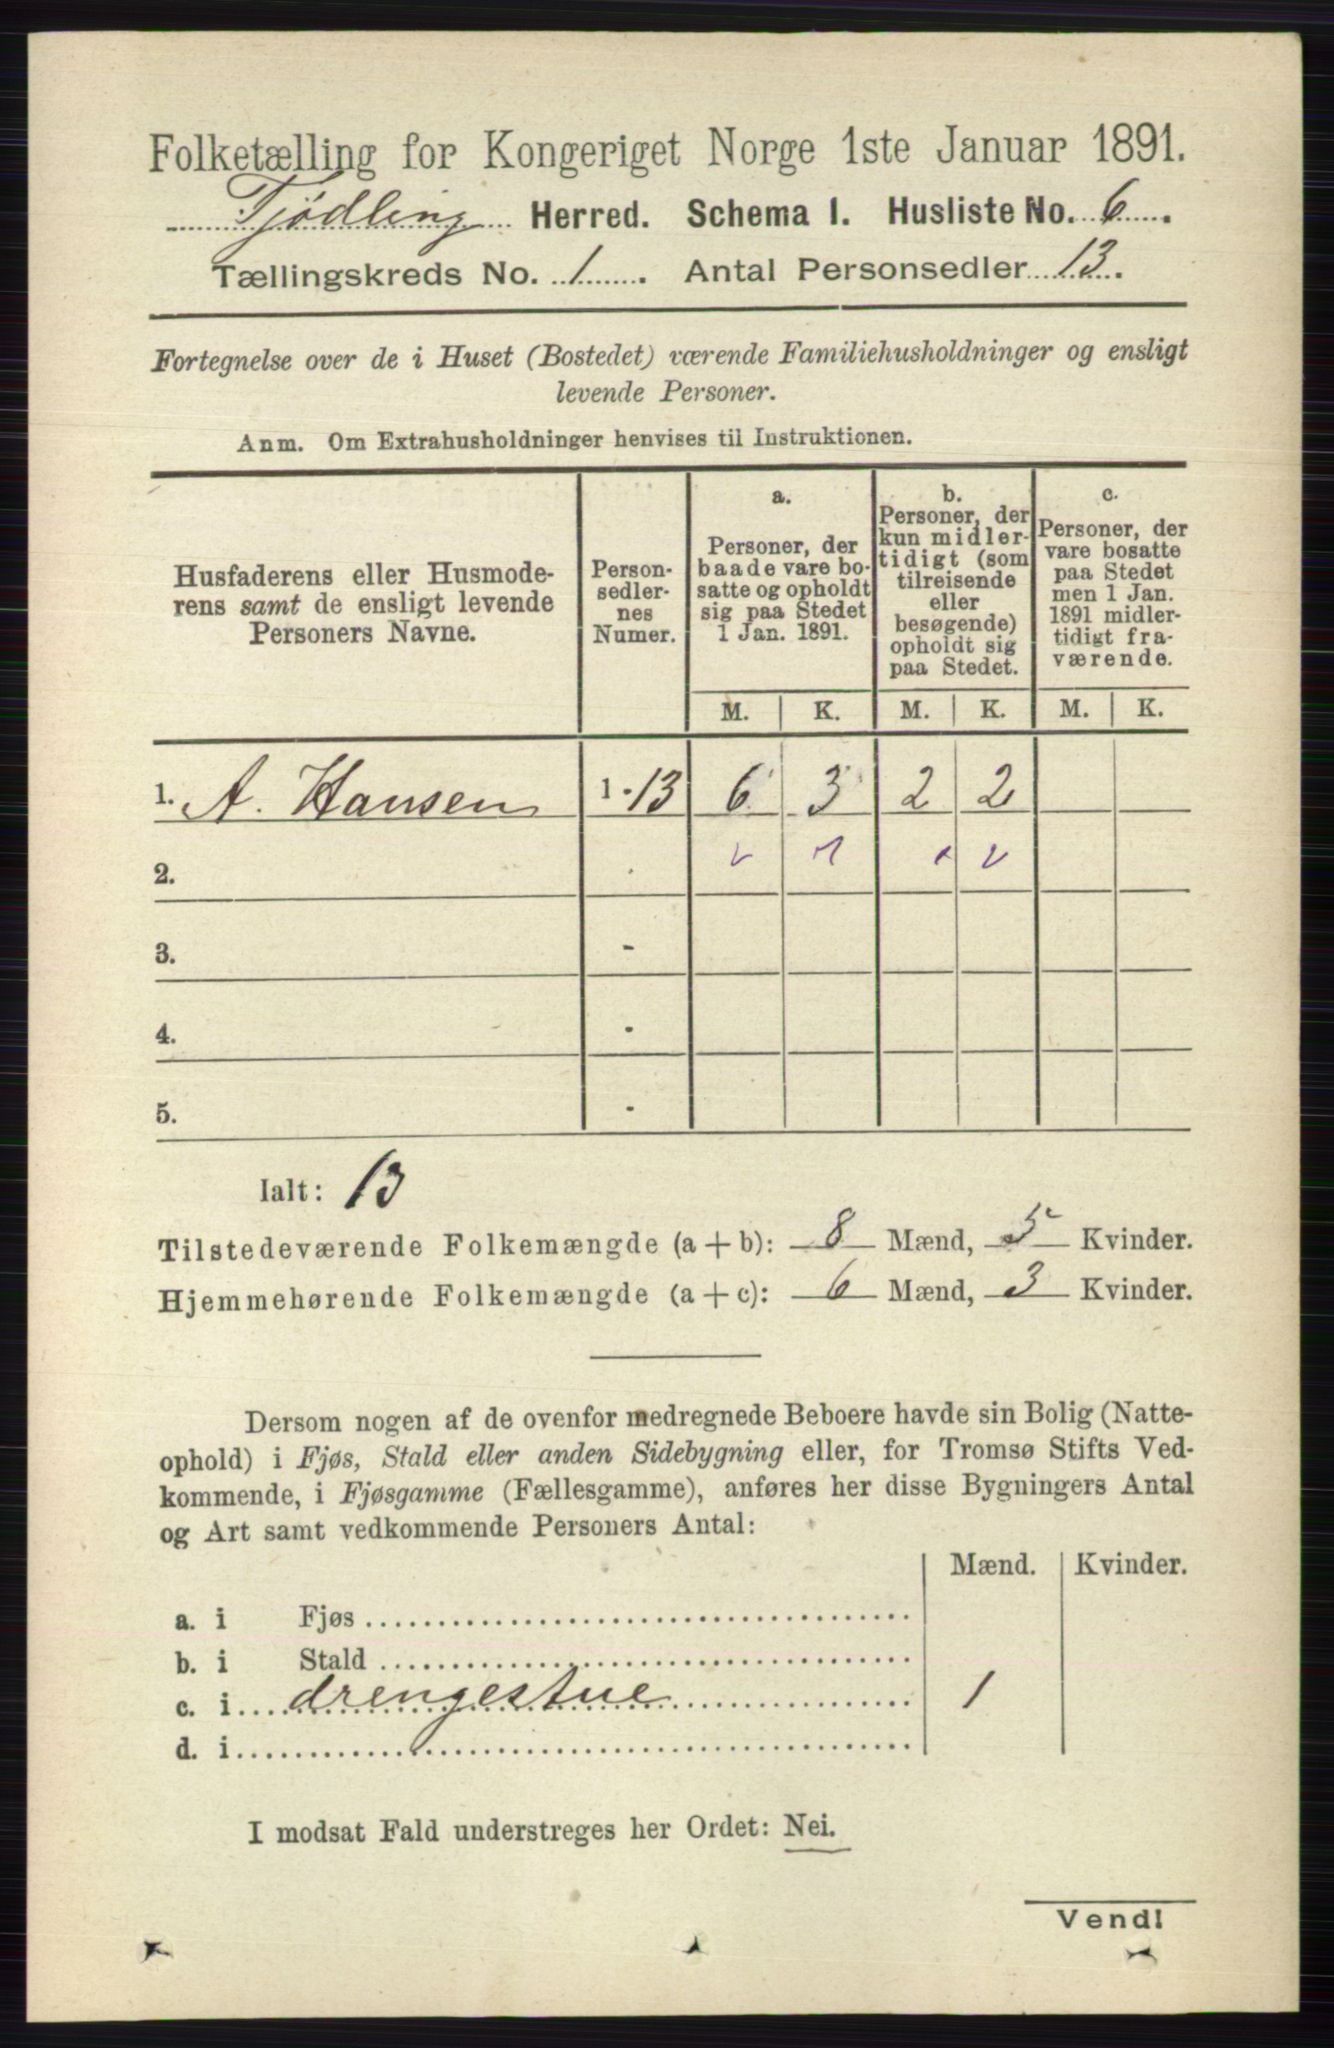 Folketælling for Kongeriget Norge 1ste Januar 1891.
Tjødling Herred. Schema 1. Husliste No. 6.
Tællingskreds No. 1. Antal Personsedler 13.
Fortegnelse over de i Huset (Bostedet) værende Familiehusholdninger og ensligt
levende Personer.
Anm. Om Extrahusholdninger henvises til Instruktionen.
Husfaderens eller Husmode-
rens samt de ensligt levende
Personers Navne.
Person-
sedler-
nes
Numer.
a.
Personer, der
baade vare bo-
satte og opholdt
sig paa Stedet
1 Jan. 1891.
b.
Personer, der
kun midler-
tidigt (som
tilreisende
eller
besøgende)
opholdt sig
paa Stedet.
c.
Personer, der
vare bosatte
paa Stedet
men 1 Jan.
1891 midler-
tidigt fra-
værende.
M. K. M. K. M. K.
1. A. Hansen 1-13 6 3 2 2
2.
3. -
4. -
5. -
Ialt: 13
Tilstedeværende Folkemængde (a + b): 8 Mænd, 5 Kvinder.
Hjemmehørende Folkemængde (a + c): 6 Mænd, 3 Kvinder.
Dersom nogen af de ovenfor medregnede Beboere havde sin Bolig (Natte-
ophold) i Fjøs, Stald eller anden Sidebygning eller, for Tromsø Stifts Ved-
kommende, i Fjøsgamme (Fællesgamme), anføres her disse Bygningers Antal
og Art samt vedkommende Personers Antal:
Mænd. Kvinder.
a. i Fjøs
b. i Stald
c. i drengestue 1
d. i
I modsat Fald understreges her Ordet: Nei.
Vend!